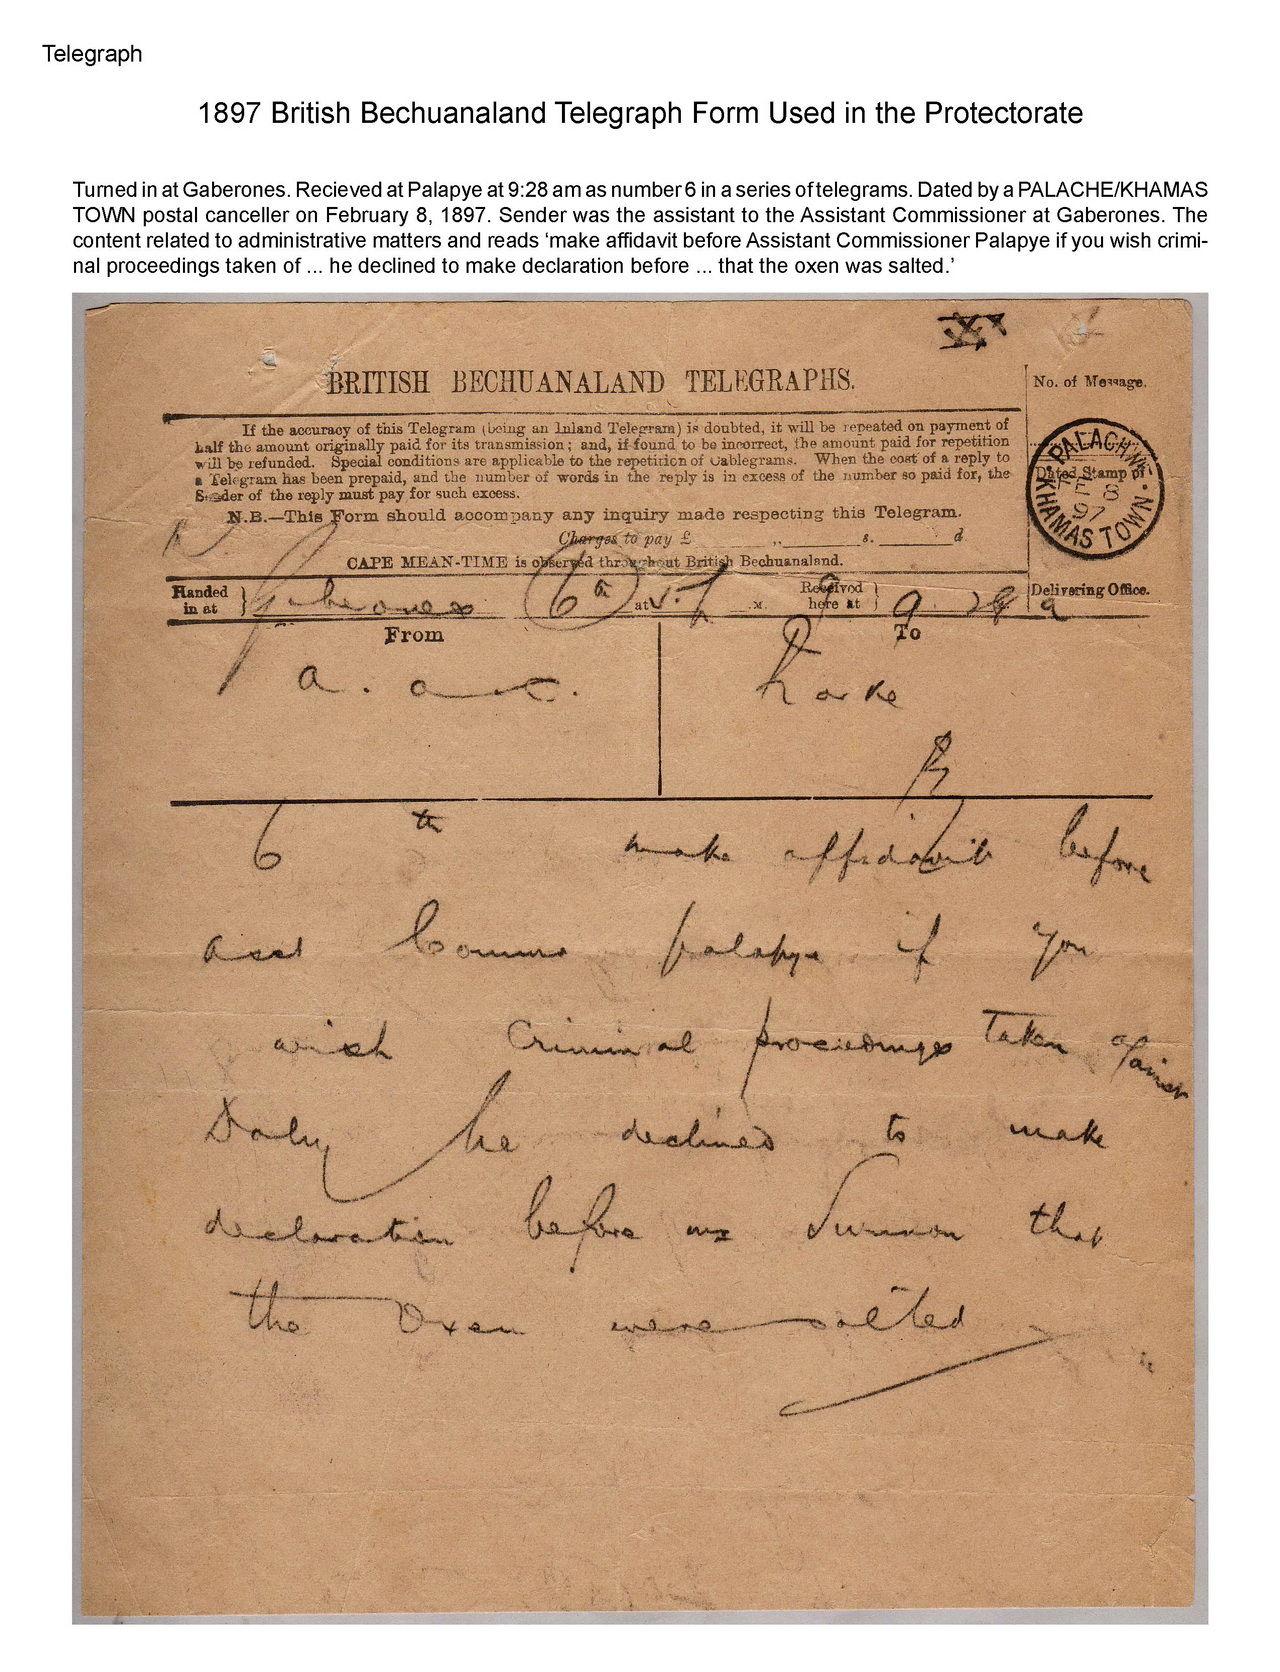 Telegraph
1897 British Bechuanaland Telegraph Form Used in the Protectorate
Turned in at Gaberones. Recieved at Palapye at 9:28 am as number 6 in a series of telegrams. Dated by a PALACHE/KHAMAS
TOWN postal canceller on February 8, 1897. Sender was the assistant to the Assistant Commissioner at Gaberones. The
content related to administrative matters and reads ‘make affidavit before Assistant Commissioner Palapye if you wish crimi-
nal proceedings taken of ... he declined to make declaration before ... that the oxen was salted.’
BRITISH BECHUANALAND TELEGRAPHS.
No. of Message.
If the accuracy of this Telegram (being an Inland Telegram) is doubted, it will be repeated on payment of
half the amount originally paid for its transmission; and, if found to be incorrect, the amount paid for repetition
will be refunded. Special conditions are applicable to the repetition of Cablegrams. When the cost of a reply to
a Telegram has been prepaid, and the number of words in the reply is in excess of the number so paid for, the
Sender of the reply must pay for such excess.
N.B.—This Form should accompany any inquiry made respecting this Telegram.
Charges to pay £ ,, s. d
CAPE MEAN-TIME is observed throughout British Bechuanaland.
Dated Stamp of
PALACHWE
FE 8
97
KHAMAS TOWN
Delivering Office.
Handed in at Gaberones 6th at M. Received here at 9.28 a
From To
a. a. c.
6th make affidavit before
asst Commr palapye if you
wish Criminal proceedings Taken against
Daly he declined to make
declaration before me that
the Oxen were salted